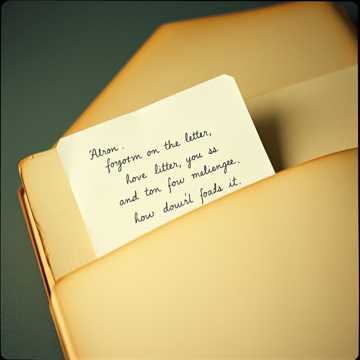 Atron.
fogotm on the letter,
hove litter, you ss
and ton fow meliengee.
how dowi'l foads it.